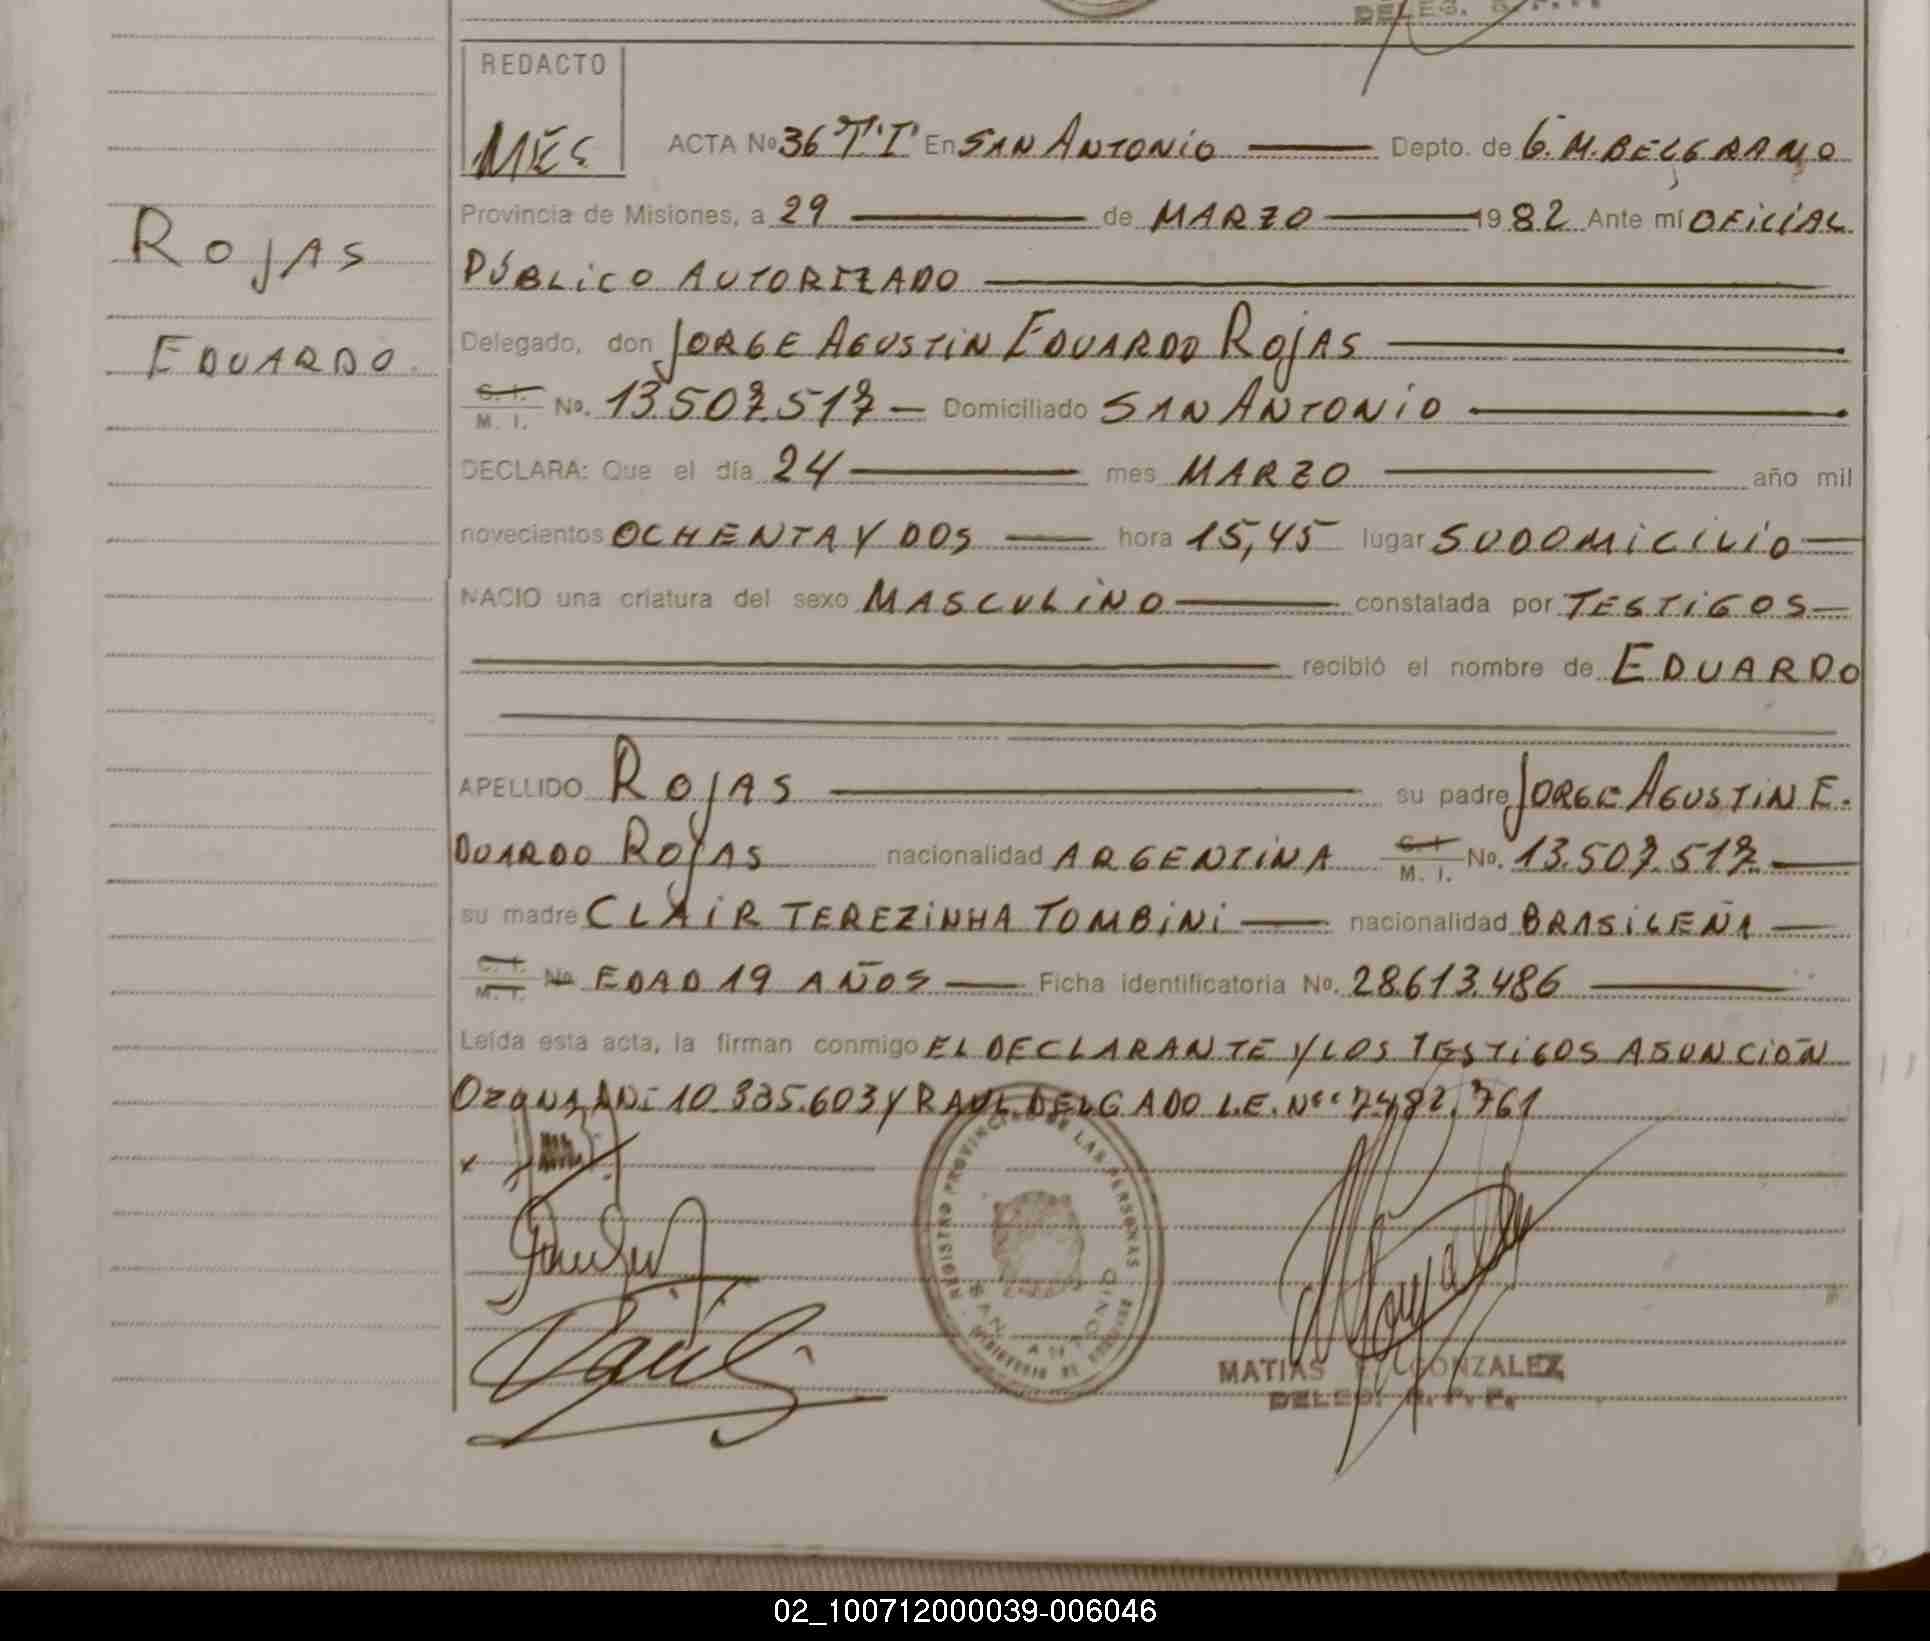 REDACTO
MES
ACTA No 36 T"I" En SAN ANTONIO Depto. de G. M. BELGRANO
Provincia de Misiones, a 29 de MARZO 1982 Ante mí OFICIAL
PÚBLICO AUTORIZADO
ROJAS
EDUARDO
Delegado, don JORGE AGUSTIN EDUARDO ROJAS
C. I.
M. I. No. 13.507.517 Domiciliado SAN ANTONIO
DECLARA: Que el día 24 mes MARZO año mil
novecientos OCHENTA Y DOS hora 15,45 lugar SU DOMICILIO
NACIO una criatura del sexo MASCULINO constatada por TESTIGOS
recibió el nombre de EDUARDO
APELLIDO ROJAS su padre JORGE AGUSTIN E-
DUARDO ROJAS nacionalidad ARGENTINA C. I. M. I. No. 13.507.517
su madre CLAIR TEREZINHA TOMBINI nacionalidad BRASILEÑA
C. I. M. I. No EDAD 19 AÑOS Ficha identificatoria No. 28.613.486
Leída esta acta, la firman conmigo EL DECLARANTE Y LOS TESTIGOS ASUNCIÓN
10.335.603 Y RAUL DELGADO L.E. Nº: 7.482.761
REGISTRO PROVINCIAL DE LAS PERSONAS
SAN ANTONIO
MATIAS GONZALEZ
DELEG. R. P. P.
02_100712000039-006046